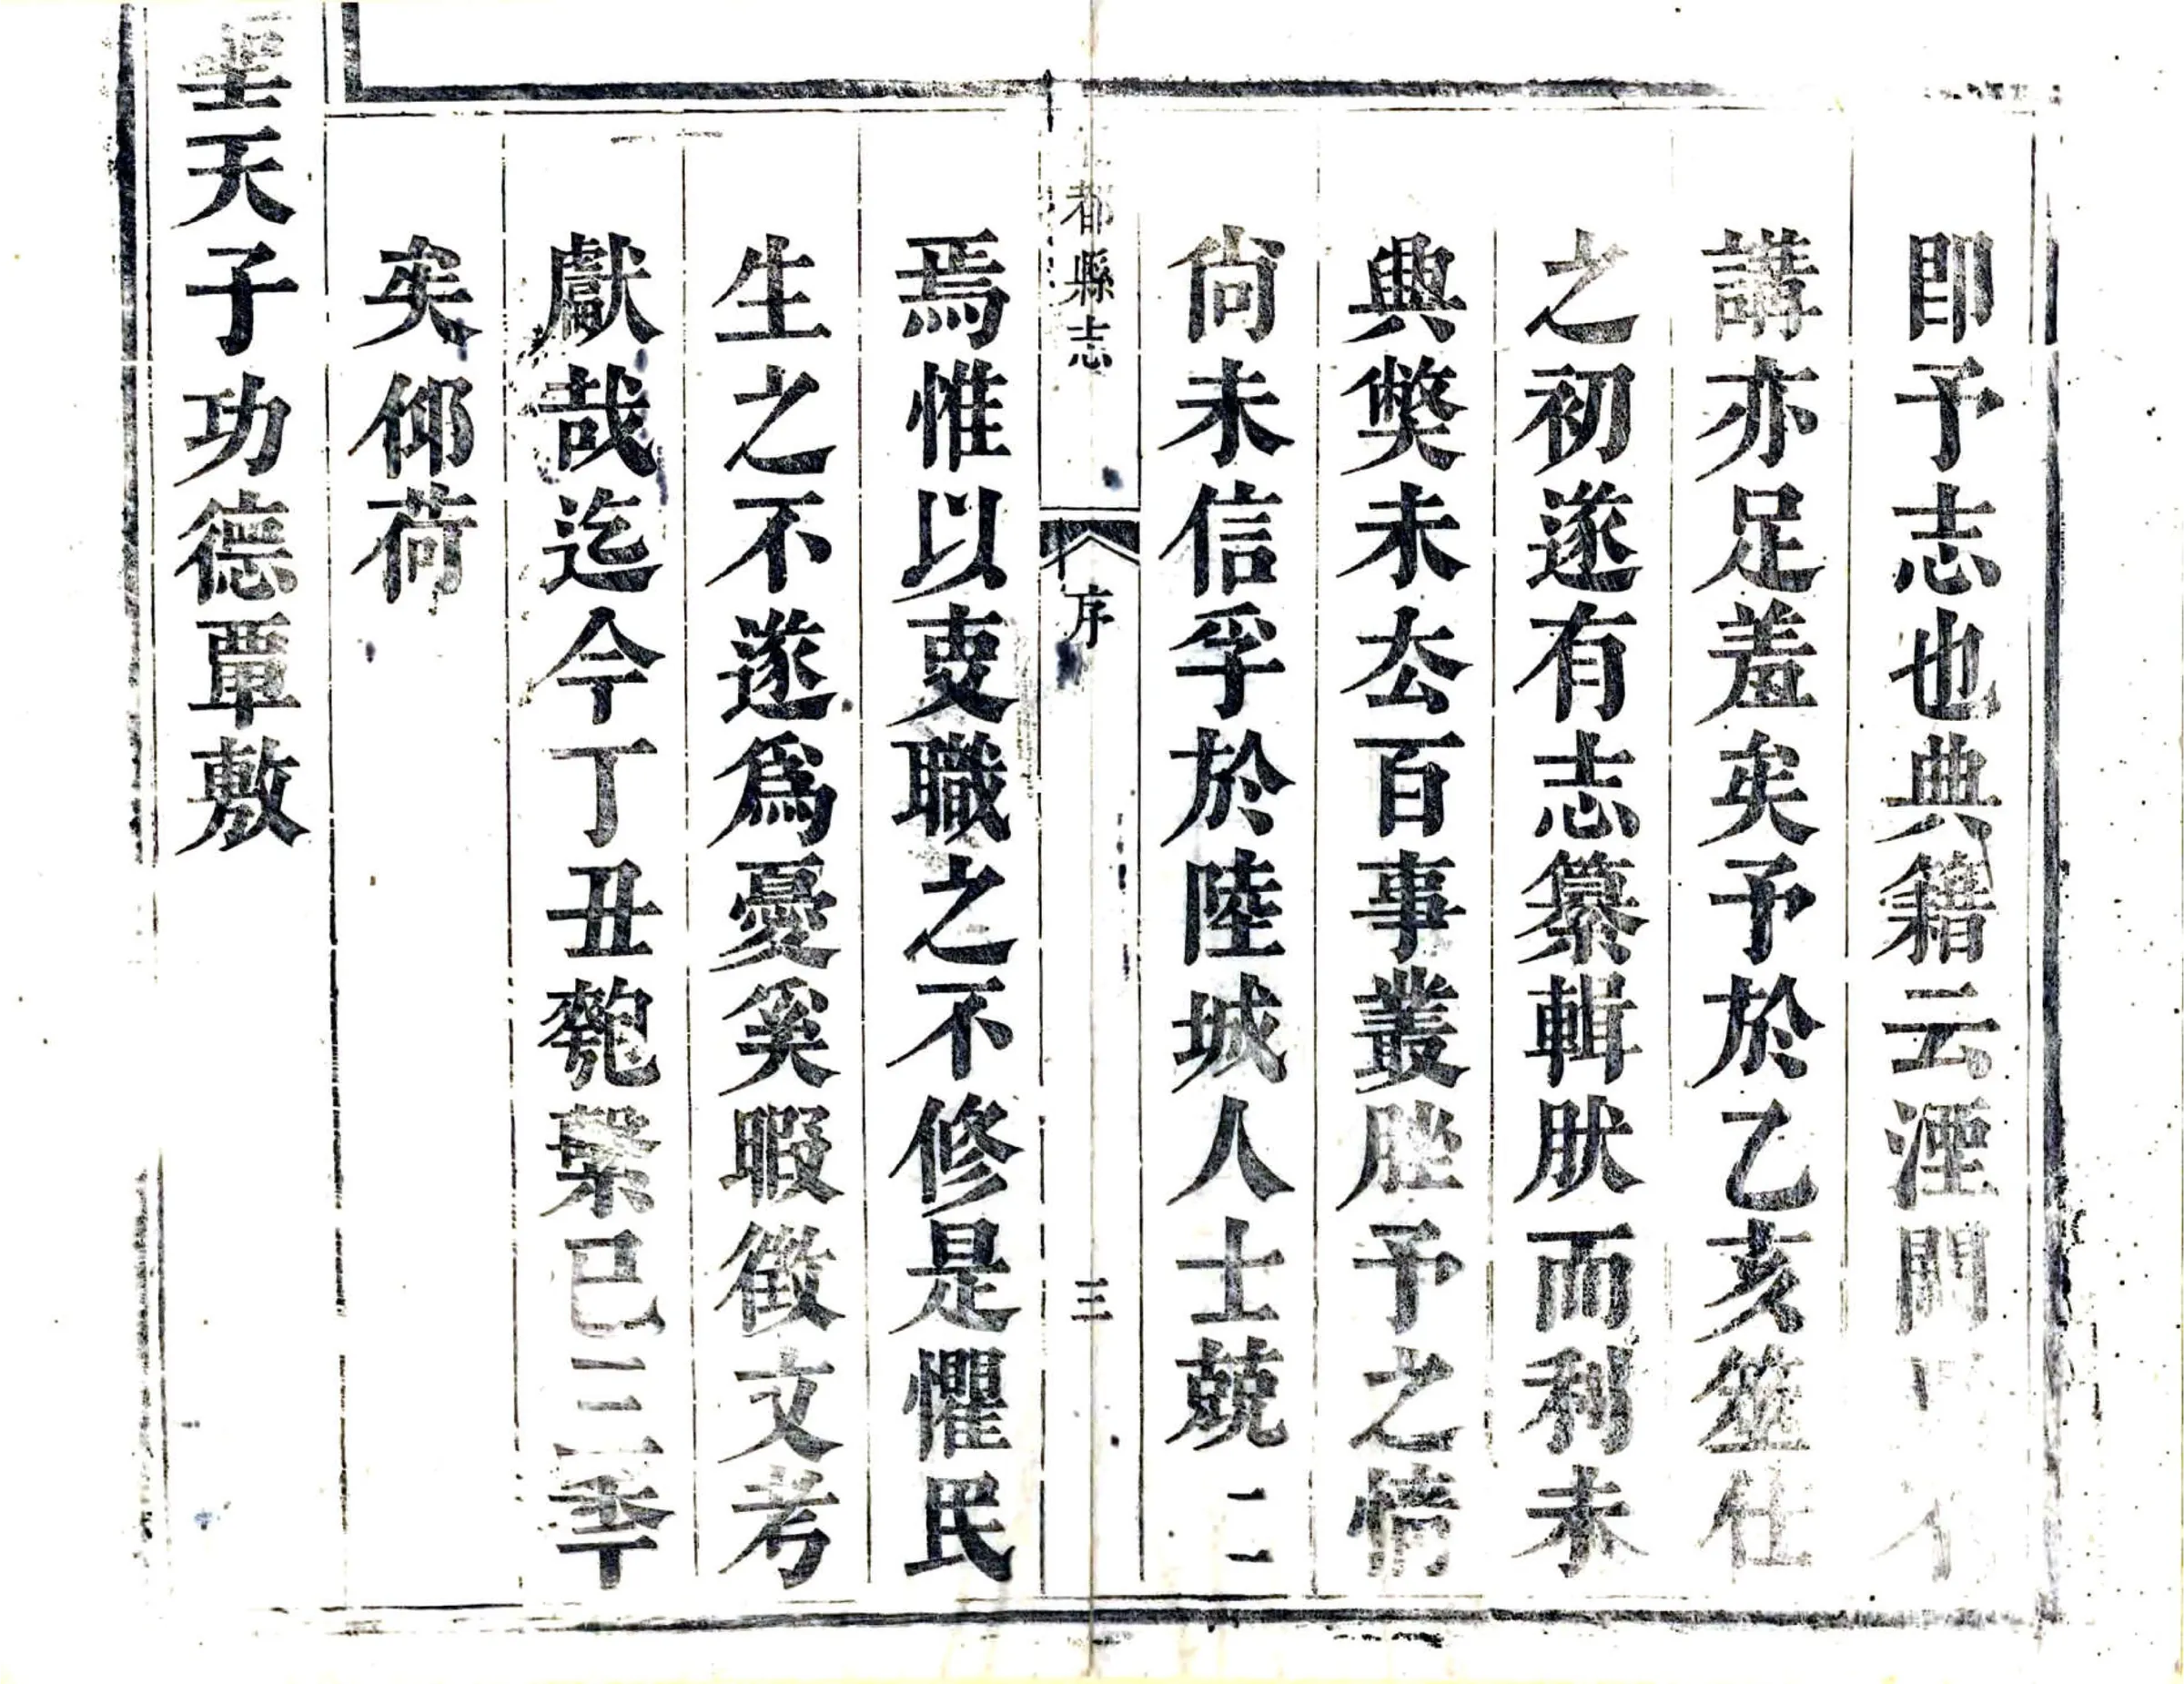 即予志也典籍云湮闕
講亦足羞矣予於乙亥筮仕
之初遂有志纂輯肰而利未
興獘未厺百事叢脞予之情
尙未信孚於陸城人士兢二
都縣志
序
三
焉惟以吏職之不修是懼民
生之不遂爲憂奚暇徵文考
獻哉迄今丁丑匏繫已三秊
矣仰荷
聖天子功德覃敷